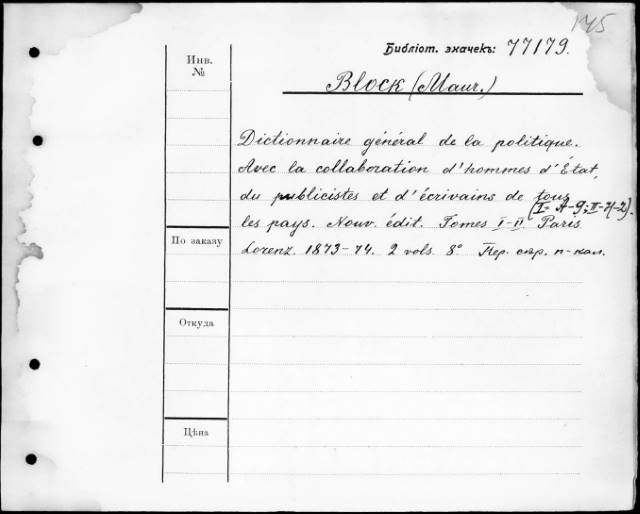 145
Библіот. значекъ: 77179.
Инв. №
Block (Maur.)
Dictionnaire général de la politique.
Avec la collaboration d'hommes d'État,
du publicistes et d'écrivains de tous
(I= A-G; II=H-Z).
les pays. Nouv. édit. Tomes I-II. Paris
Lorenz. 1873-74. 2 vols. 8° Пер. сѣр. п-кал.
По заказу
Откуда
Цѣна